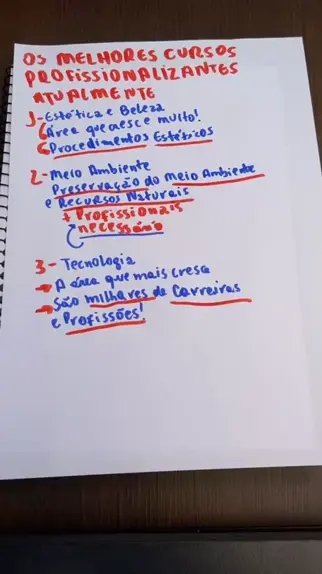 OS MELHORES CURSOS
PROFISSIONALIZANTES
ATUALMENTE
1- Estética e Beleza
Área que cresce muito!
Procedimentos Estéticos
2- Meio Ambiente
Preservação do Meio Ambiente
e Recursos Naturais
+ Profissionais
necessário
3- Tecnologia
→ A área que mais cresce
→ São milhares de Carreiras
e Profissões!